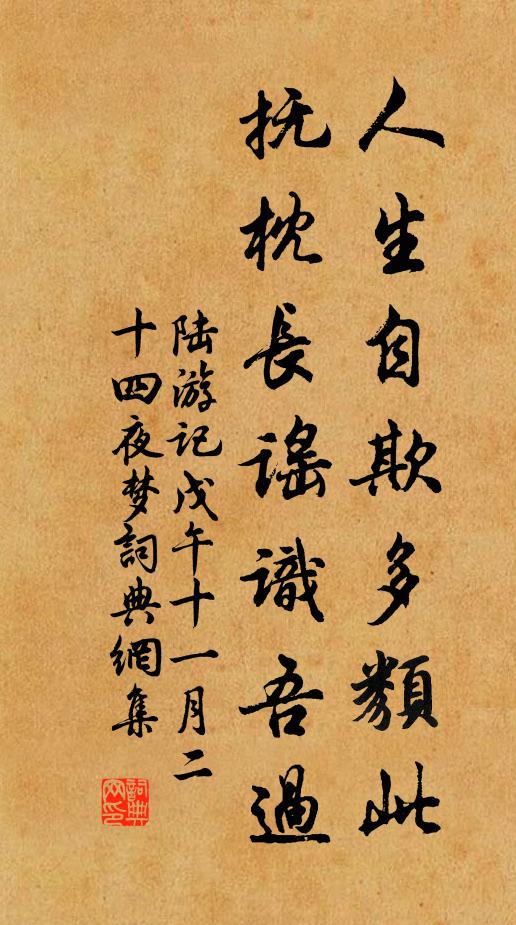 人生自欺多類此
抚枕長謡識吾過
陆游记戊午十一月二
十四夜梦詞典網集
詞典
网印